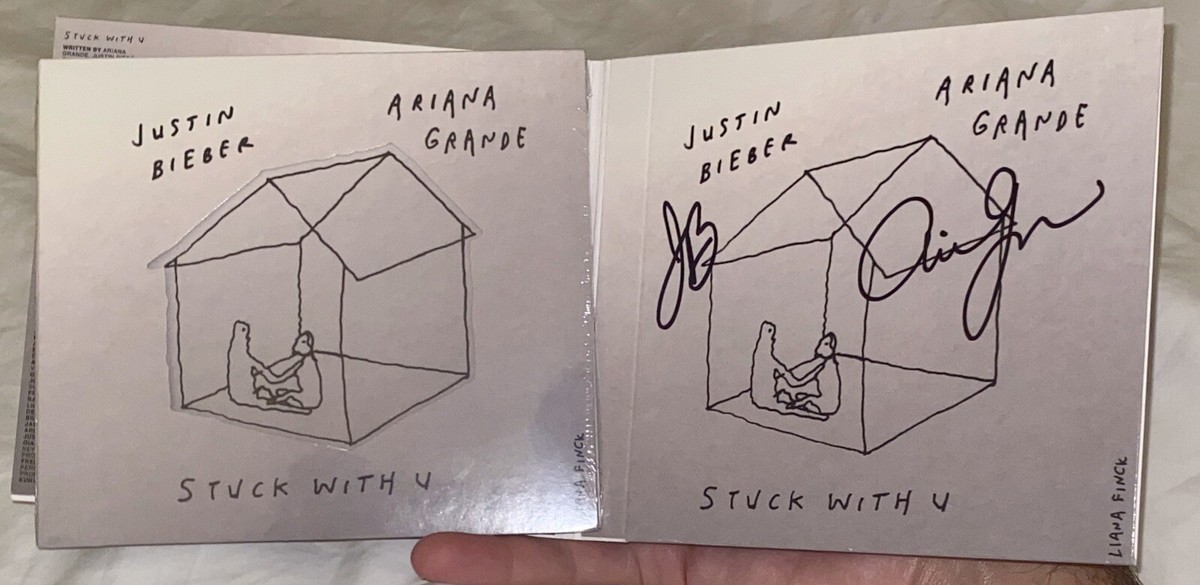 STUCK WITH U
WRITTEN BY ARIANA
JUSTIN
BIEBER
ARIANA
GRANDE
STUCK WITH U
JUSTIN
BIEBER
ARIANA
GRANDE
JB
STUCK WITH U
LIANA FINCK